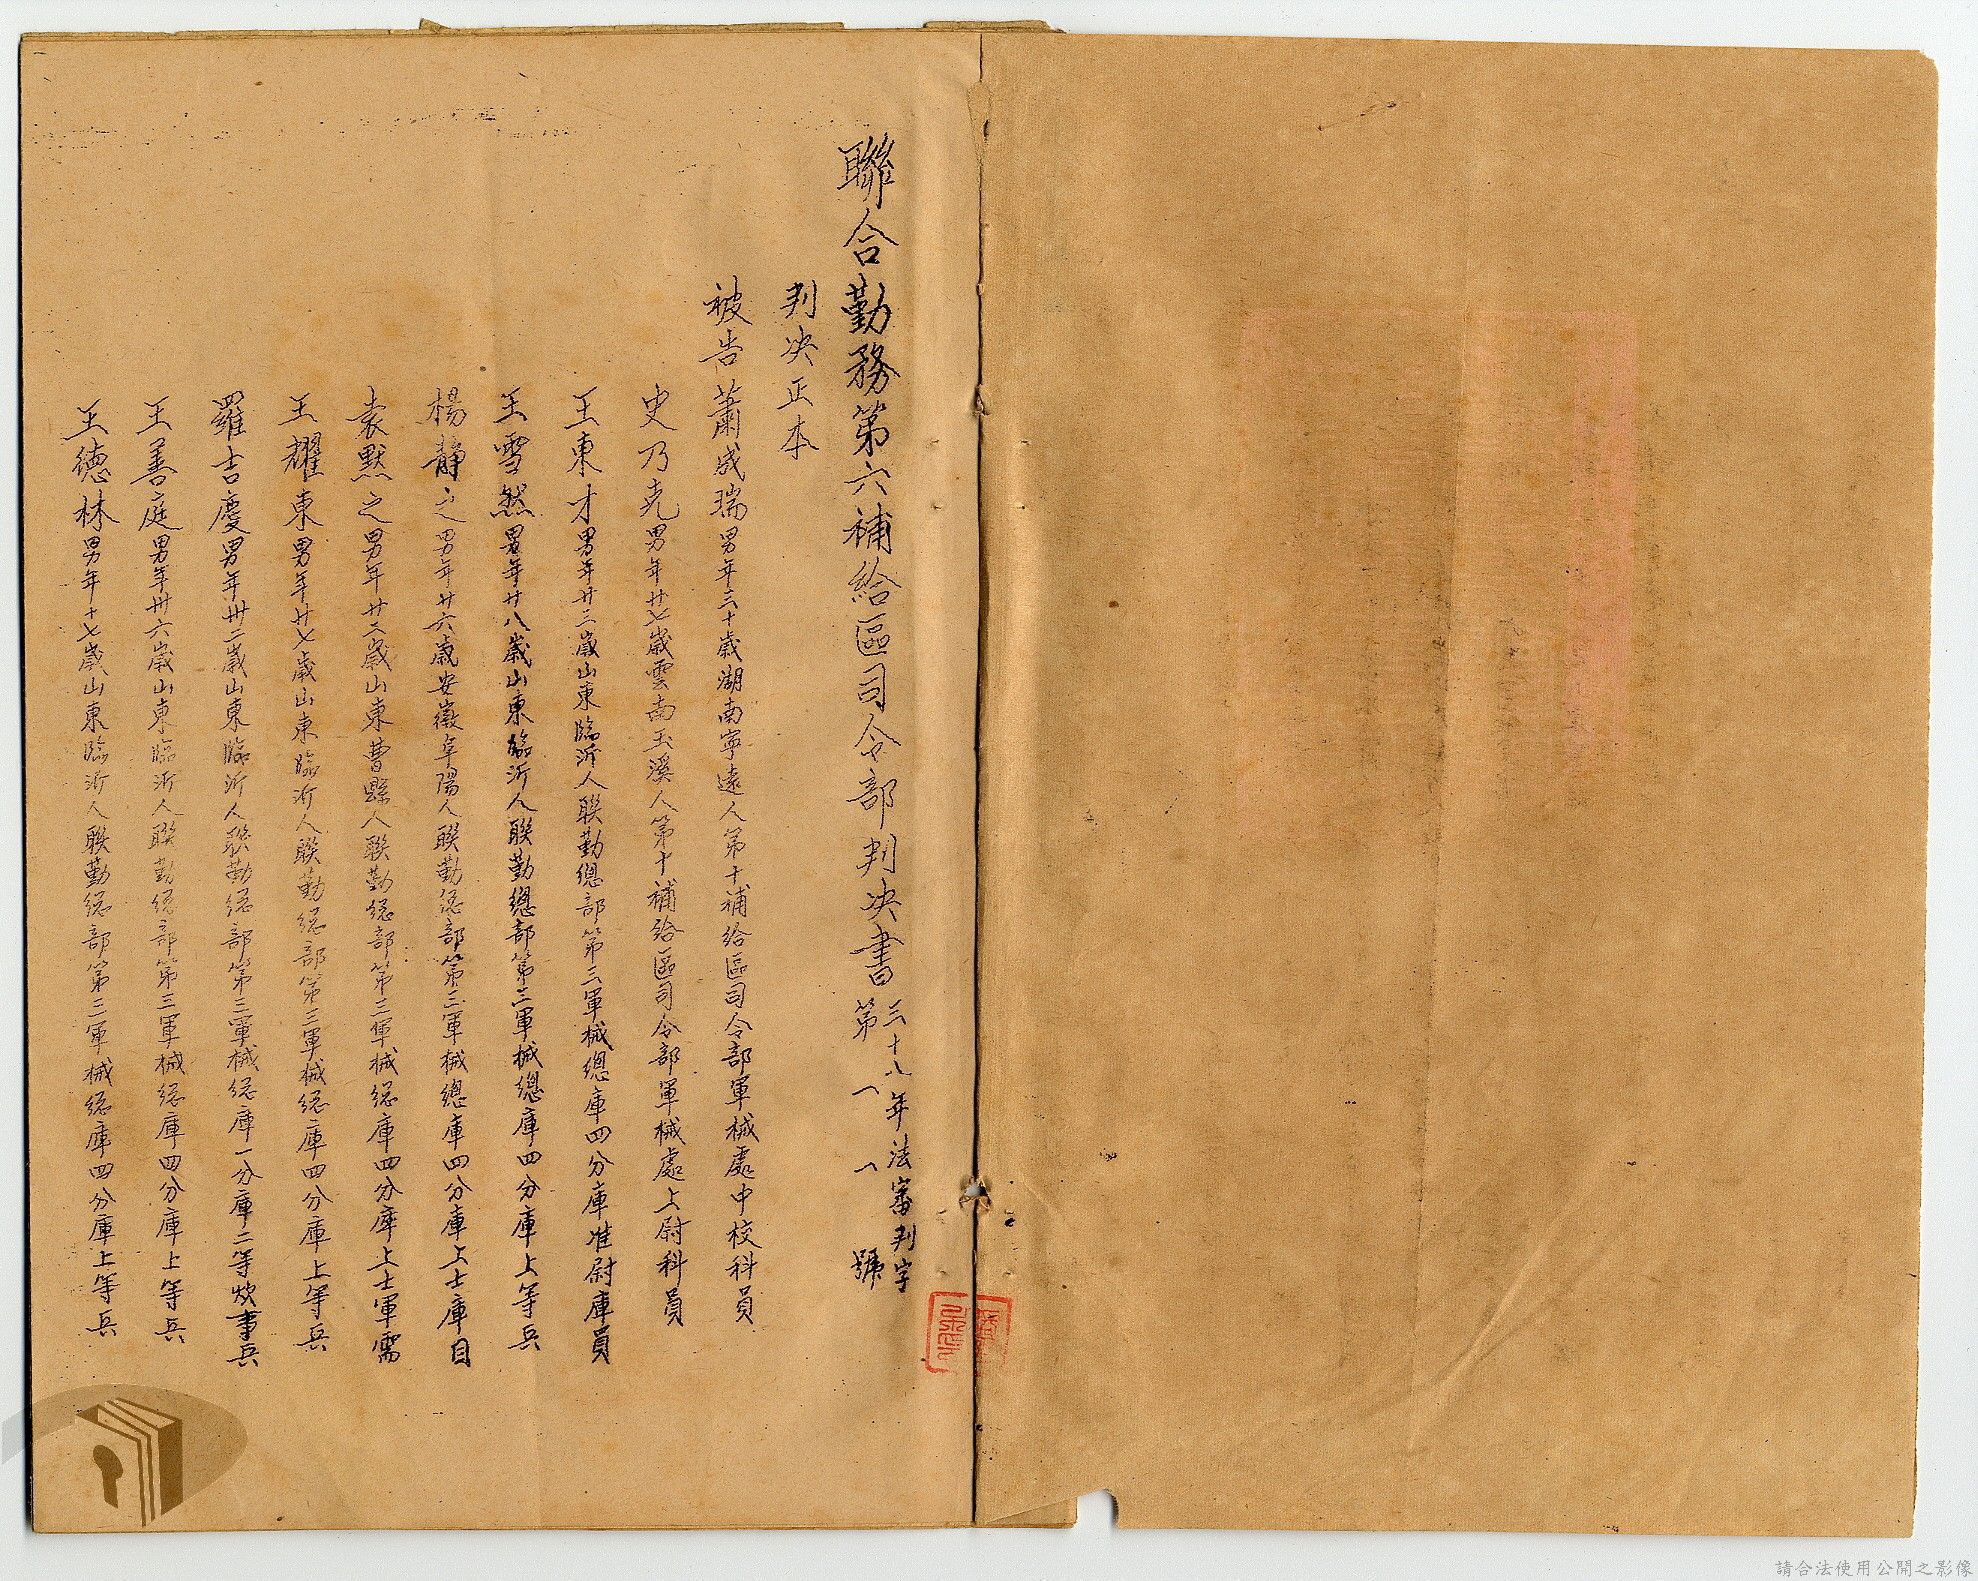 聯合勤務第六補給區司令部判決書
三十八年法審判字
第一一號
判決正本
被告蕭成瑞男年三十歲湖南寧遠人第十補給區司令部軍械處中校科員
史乃克男年廿七歲雲南玉溪人第十補給區司令部軍械處上尉科員
王東才男年廿三歲山東臨沂人聯勤總部第三軍械總庫四分庫准尉庫員
王雪然男年廿八歲山東臨沂人聯勤總部第三軍械總庫四分庫上等兵
楊靜之男年廿六歲安徽阜陽人聯勤總部第三軍械總庫四分庫上士庫目
袁默之男年廿二歲山東曹縣人聯勤總部第三軍械總庫四分庫上士軍需
王耀東男年廿七歲山東臨沂人聯勤總部第三軍械總庫四分庫上等兵
羅吉慶男年卅二歲山東臨沂人聯勤總部第三軍械總庫一分庫二等炊事兵
王善庭男年卅六歲山東臨沂人聯勤總部第三軍械總庫四分庫上等兵
王德林男年十七歲山東臨沂人聯勤總部第三軍械總庫四分庫上等兵
請合法使用公開之影像